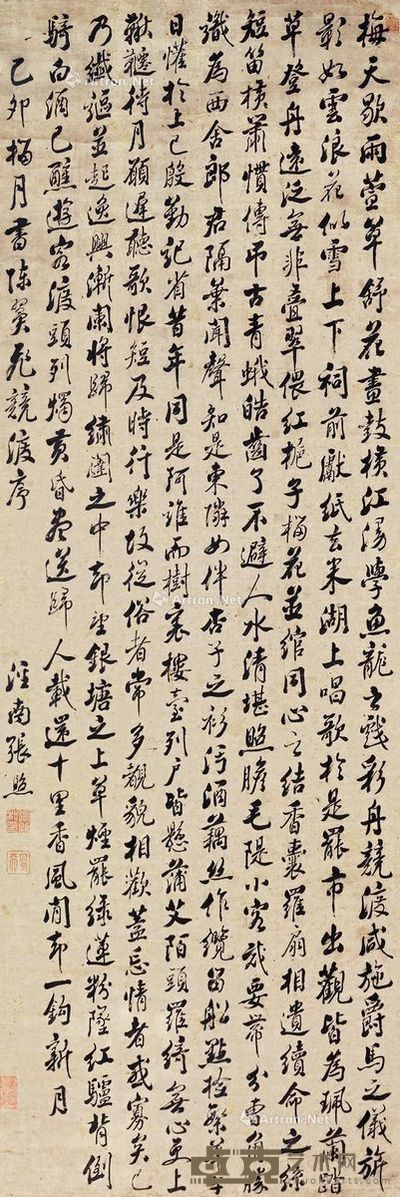 梅天歇雨萱草舒花畫鼓橫江漫學魚龍之戲彩舟競渡咸施爵馬之儀旂
影如雲浪花似雪上下祠前獻紙去來湖上唱歌於是罷市出觀皆為珮蘭躋
草登舟遠泛無非疊翠偎紅梔子榴花並綰同心之結香囊羅扇相遺續命之絲
短笛橫簫慣傳弔古青蛾皓齒了不避人水清堪照膽毛隄小客或要帶分香角勝
識為西舍郎君隔葉聞聲知是東隣女伴杏子之衫污酒藕絲作纜留船點檢
日懽於上巳殷勤記省昔年同是阿誰而樹裏樓臺列戶皆懸蒲艾陌頭羅綺無心更上
鞦韆待月願遲聽歌恨短及時行樂故從俗者常多觀貌相歡蓋忘情者或寡矣已
乃纖謳並起逸興漸闌將歸繡闥之中却望銀塘之上草煙罷綠蓮粉墜紅驢背倒
騎白酒已醺遊客渡頭列燭黃昏盡送歸人載還十里香風閒却一鉤新月
乙卯榴月書陳冀飛競渡序
涇南張照
Artron.Net